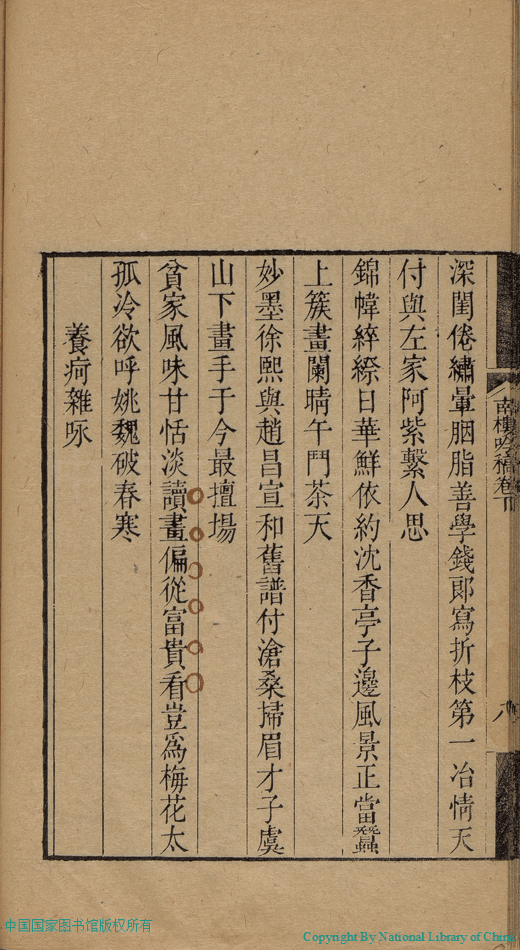 南樓吟稿卷下
八
深閨倦繡暈胭脂善學錢郎寫折枝第一冶情天
付與左家阿紫繫人思
錦幃綷縩日華鮮依約沈香亭子邊風景正當蠶
上簇畫闌晴午鬥茶天
妙墨徐熙與趙昌宣和舊譜付滄桑掃眉才子虞
山下畫手于今最擅場
貧家風味甘恬淡讀畫偏從富貴看豈爲梅花太
孤冷欲呼姚魏破春寒
養疴雜咏
中国国家图书馆版权所有
Copyright By National Library of China